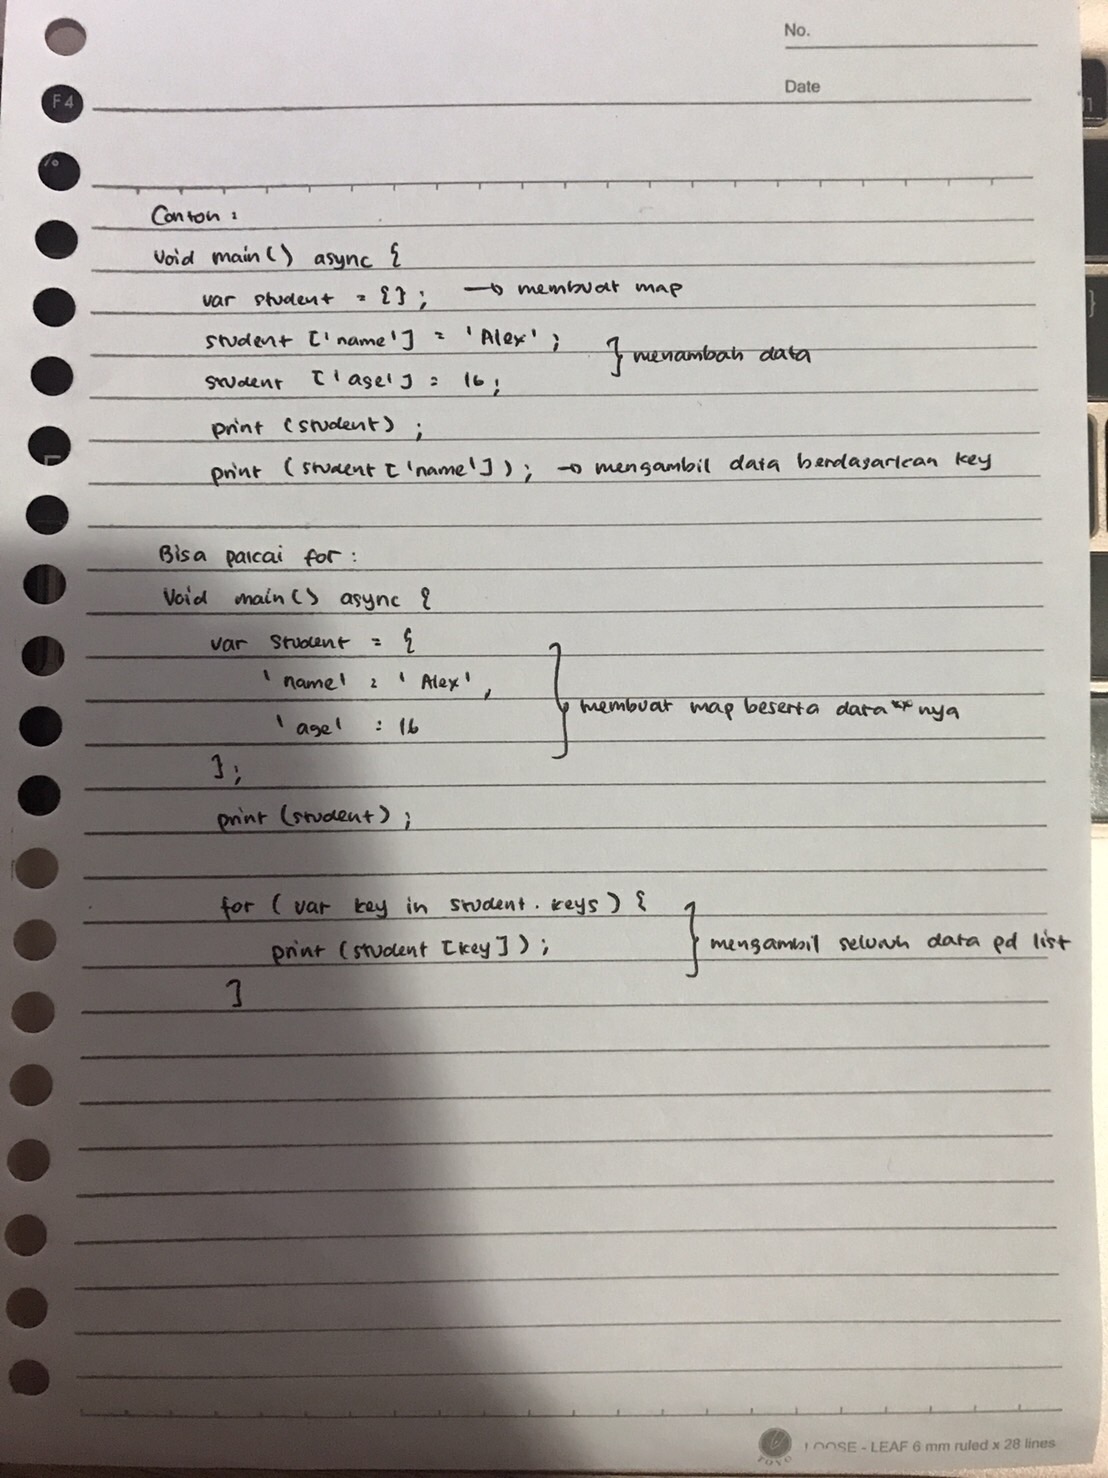 No.
Date
Contoh :
Void main() async {
var student = {}; → membuat map
student ['name'] = 'Alex' ;
} menambah data
student ['age'] = 16;
print (student) ;
print (student ['name']) ; → mengambil data berdasarkan key
Bisa pakai for :
Void main() async {
var student = {
'name' : 'Alex',
} membuat map beserta data** nya
'age' : 16
};
print (student) ;
for ( var key in student . keys ) {
print (student [key]) ; } mengambil seluruh data pd list
}
LOOSE - LEAF 6 mm ruled x 28 lines
F4